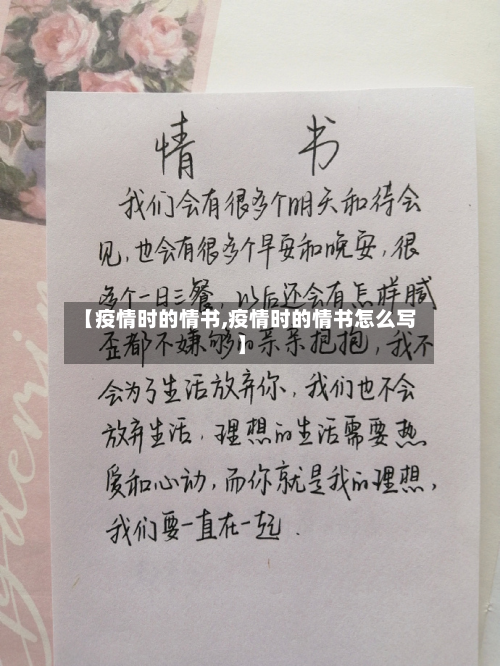 情书
我们会有很多个明天和待会
见,也会有很多个早安和晚安,很
多个一日三餐,以后还会有怎样腻
【疫情时的情书,疫情时的情书怎么写
】
歪都不嫌够的亲亲抱抱,我不
会为了生活放弃你,我们也不会
放弃生活,理想的生活需要热
爱和心动,而你就是我的理想,
我们要一直在一起.